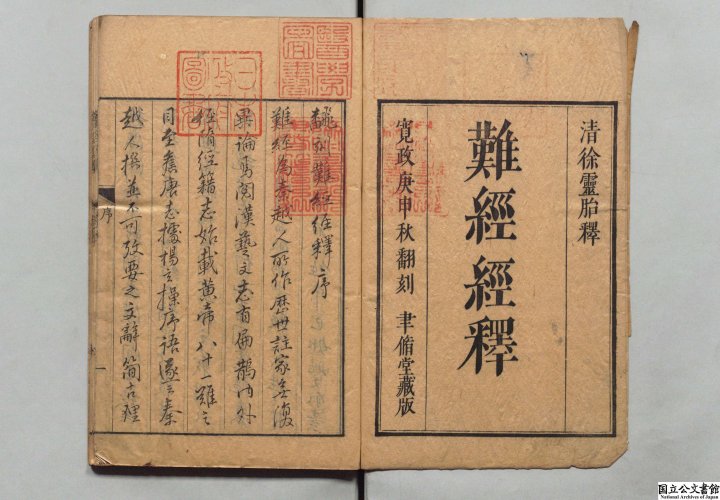 清徐靈胎釋
難經經釋
寛政庚申秋翻刻 聿脩堂藏版
翻刻難經經釋序
難經爲秦越人所作歴世註家無復
異論焉閲漢藝文志有扁鵲内外
經隋經籍志始載黄帝八十一難之
目至舊唐志據楊玄操序語遂云秦
越人撰並不可攷要之文辭簡古理
序
一
国立公文書館
National Archives of Japan